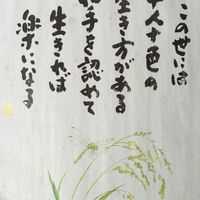 このせいは
十人十色の
生き方がある
相手を認めて
生きれば
楽になる